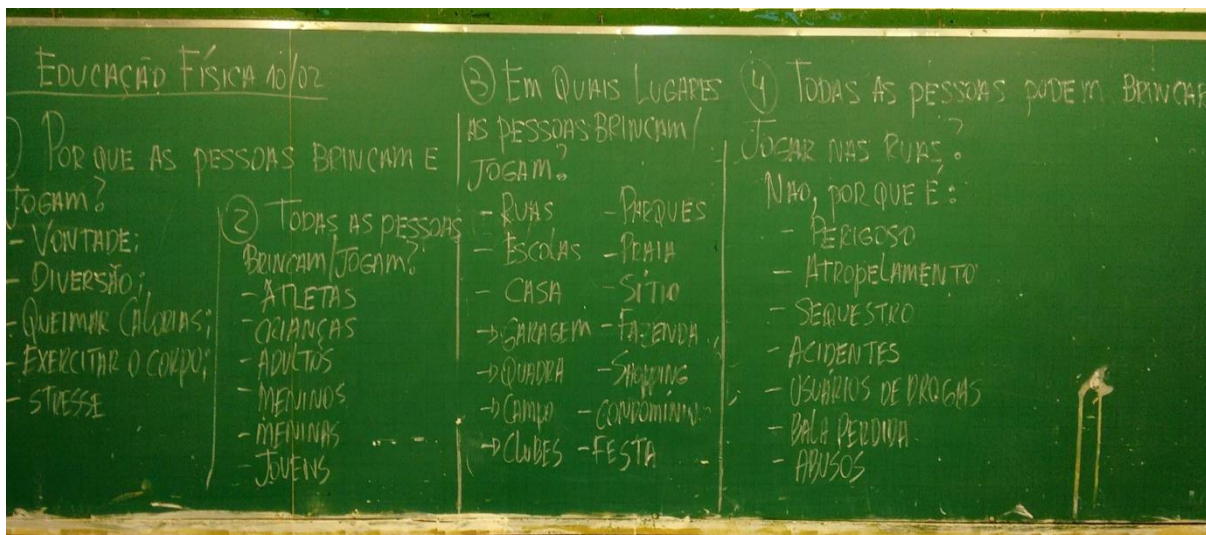 EDUCAÇÃO FÍSICA 10/02
) POR QUE AS PESSOAS BRINCAM E
JOGAM?
- VONTADE;
- DIVERSÃO;
- QUEIMAR CALORIAS;
- EXERCITAR O CORPO;
- STRESSE
② TODAS AS PESSOAS
BRINCAM/JOGAM?
- ATLETAS
- CRIANÇAS
- ADULTOS
- MENINOS
- MENINAS
- JOVENS
③ EM QUAIS LUGARES
AS PESSOAS BRINCAM/
JOGAM?
- RUAS - PARQUES
- ESCOLAS - PRAIA
- CASA - SÍTIO
→ GARAGEM - FAZENDA
→ QUADRA - SHOPPING
→ CAMPO - CONDOMÍNIO
→ CLUBES - FESTA
④ TODAS AS PESSOAS PODEM BRINCAR
JOGAR NAS RUAS?
NAO, POR QUE É:
- PERIGOSO
- ATROPELAMENTO
- SEQUESTRO
- ACIDENTES
- USUÁRIOS DE DROGAS
- BALA PERDIDA
- ABUSOS